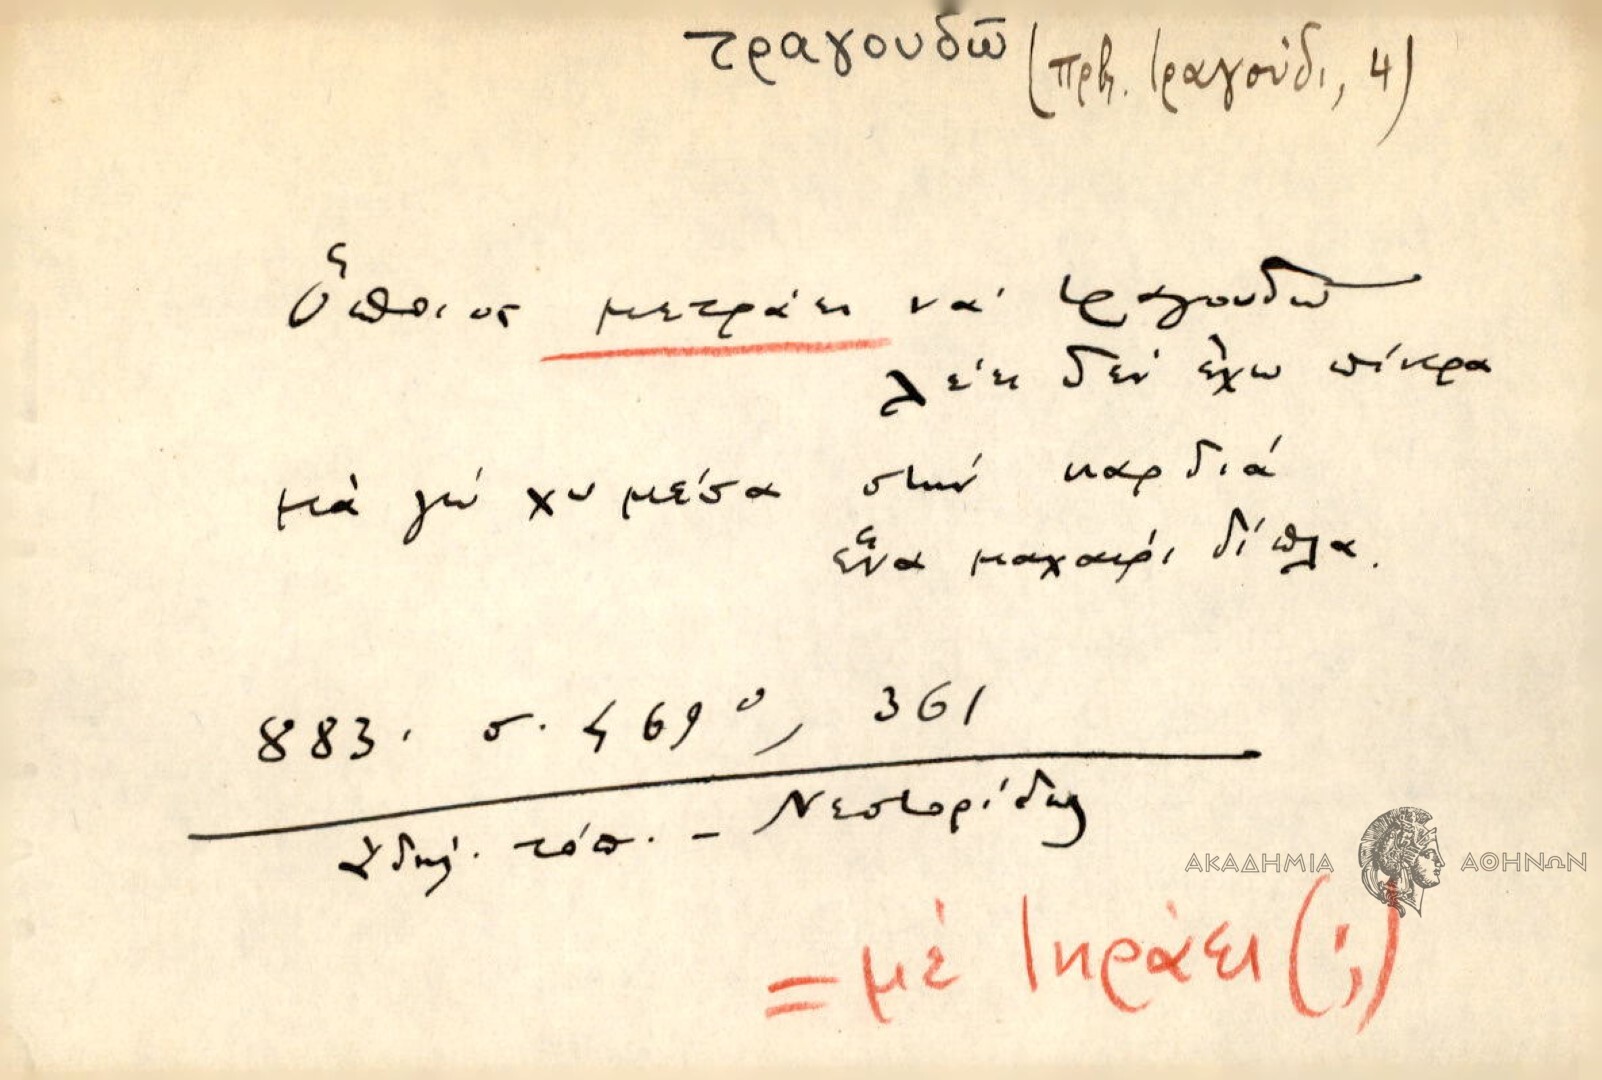 τραγουδῶ (πρβ. τραγούδι, 4)
Ὅποιος μετράει νά τραγουδῶ
λέει δέν ἔχω πίκρα
μά γώ χω μέσα στήν καρδιά
ἕνα μαχαίρι δίπλα.
883. σ. 469, 361
Ἀδήλ. τόπ. - Νεστορίδης
= μέ τηράει (;)
ΑΚΑΔΗΜΙΑ ΑΘΗΝΩΝ